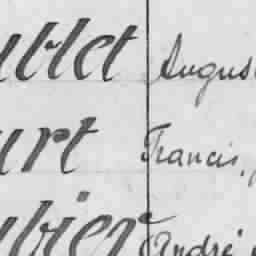 ublet Augus
urt Francis,
ubier André